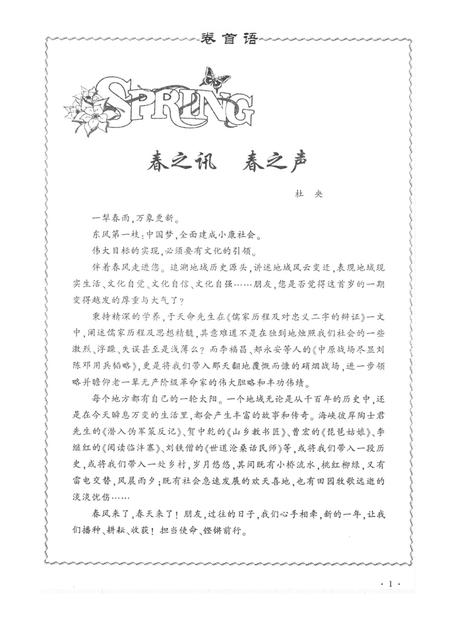 卷首语
SPRING
春之讯 春之声
杜 央
一犁春雨,万象更新。
东风第一枝:中国梦,全面建成小康社会。
伟大目标的实现,必须要有文化的引领。
伴着春风走进您。追溯地域历史源头,讲述地域风云变迁,表现地域现
实生活、文化自觉、文化自信、文化自强……朋友,您是否觉得这首岁的一期
变得越发的厚重与大气了?
秉持精深的学养,于天命先生在《儒家历程及对忠义二字的辩误》一文
中,阐述儒家历程及思想精髓,其意难道不是在独到地烛照我们社会的一些
激烈、浮躁、失误甚至是浅薄么?而李福昌、郏永安等人的《中原战场尽显刘
陈邓用兵韬略》,更是将我们带入那天翻地覆慨而慷的硝烟战场,进一步领
略并瞻仰老一辈无产阶级革命家的伟大胆略和丰功伟绩。
每个地方都有自己的一轮太阳。一个地域无论是从千百年的历史中,还
是在今天瞬息万变的生活里,都会产生丰富的故事和传奇。海峡彼岸陶士君
先生的《潜入伪军策反记》、贺中乾的《山乡教书匠》、曹宏的《琵琶姑娘》、李
继红的《阅读临沣寨》、刘铁僧的《世道沧桑话民师》等,或将我们带入一段历
史,或将我们带入一处乡村,岁月悠悠,其间既有小桥流水,桃红柳绿,又有
雷电交替,风晨雨夕;既有社会急速发展的欢天喜地,也有田园牧歌远逝的
淡淡忧伤……
春风来了,春天来了!朋友,过往的日子,我们心手相牵,新的一年,让我
们播种、耕耘、收获!担当使命、铿锵前行。
·1·